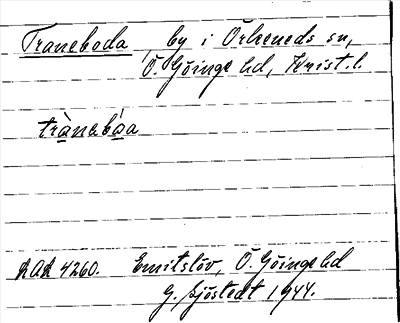 Traneboda, by i Örkeneds sn,
Ö. Göinge hd, Krist. l.
trànebóa
LAL 4260. Emitslöv, Ö. Göinge hd
G. Sjöstedt 1944.